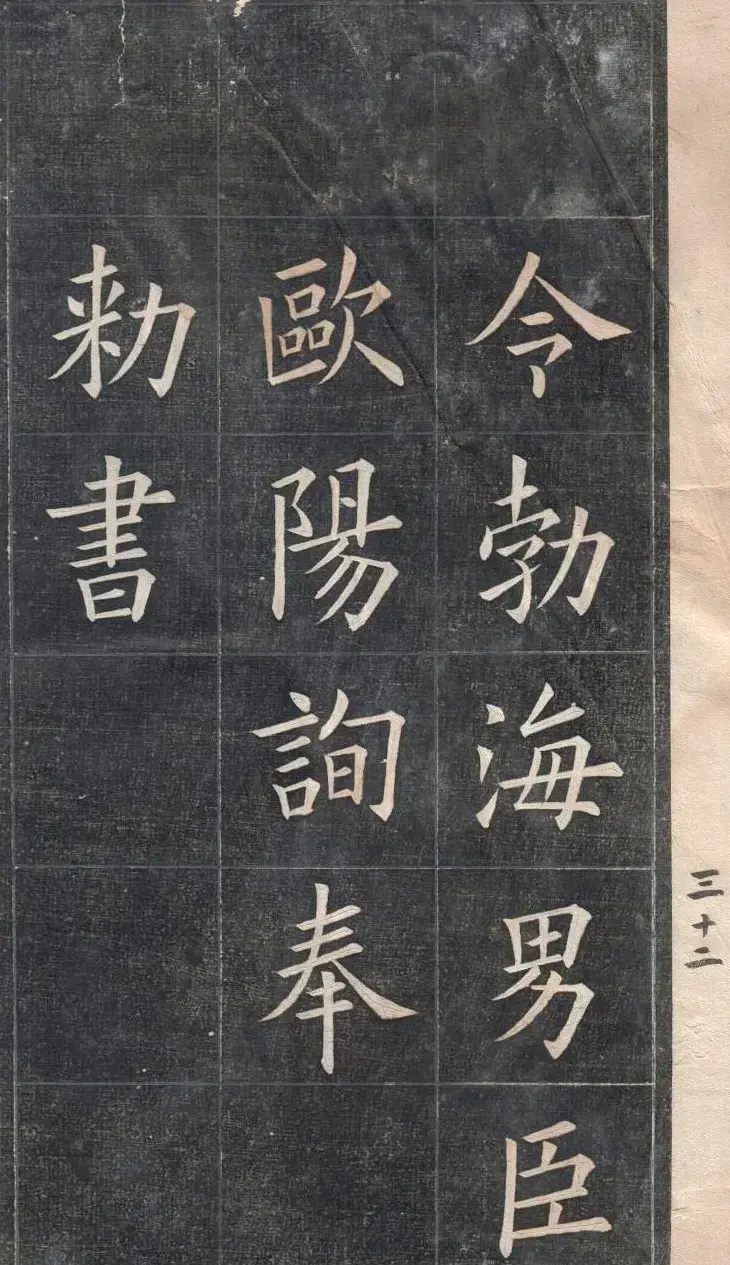 令勃海男臣
歐陽詢奉
勑書
三十二